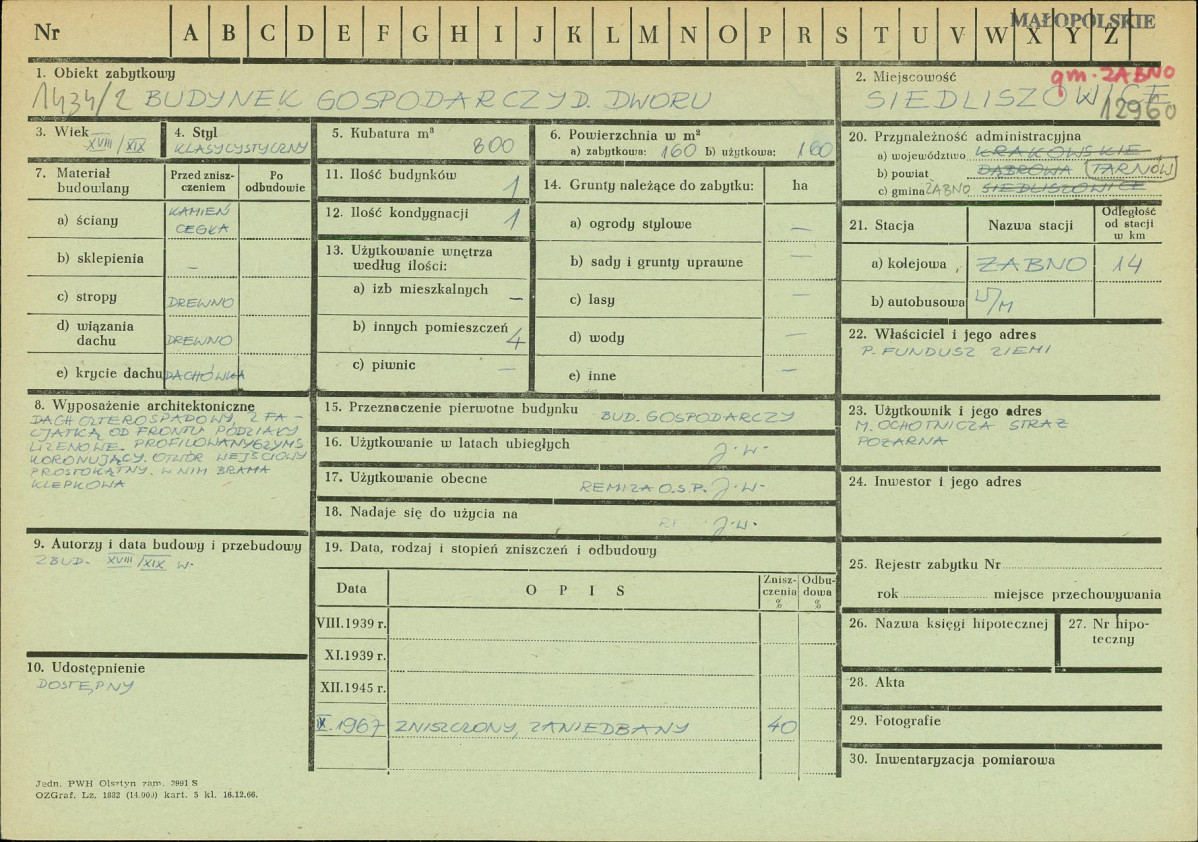 Nr A B C D E F G H I J K L M N O P R S T U V W X Y Z
MAŁOPOLSKIE
1. Obiekt zabytkowy
1434/2 BUDYNEK GOSPODARCZY D. DWORU
2. Miejscowość
gm. ŻABNO
SIEDLISZOWICE
12960
3. Wiek
XVIII/XIX
4. Styl
KLASYCYSTYCZNY
5. Kubatura m³
800
6. Powierzchnia w m²
a) zabytkowa: 160 b) użytkowa: 160
7. Materiał budowlany
Przed zniszczeniem
Po odbudowie
a) ściany
KAMIEŃ
CEGŁA
b) sklepienia –
c) stropy DREWNO
d) wiązania dachu DREWNO
e) krycie dachu DACHÓWKA
11. Ilość budynków 1
12. Ilość kondygnacji 1
13. Użytkowanie wnętrza
według ilości:
a) izb mieszkalnych –
b) innych pomieszczeń 4
c) piwnic –
14. Grunty należące do zabytku: ha
a) ogrody stylowe –
b) sady i grunty uprawne –
c) lasy –
d) wody –
e) inne –
20. Przynależność administracyjna
a) województwo KRAKOWSKIE
b) powiat DĄBROWA TARNÓW
c) gmina ŻABNO SIEDLISZOWICE
21. Stacja
Nazwa stacji
Odległość od stacji w km
a) kolejowa ŻABNO 14
b) autobusowa W/M
22. Właściciel i jego adres
P. FUNDUSZ ZIEMI
8. Wyposażenie architektoniczne
DACH CZTEROSPADOWY, Z FA-
CJATKĄ OD FRONTU PODZIAŁY
LIZENOWE. PROFILOWANY GZYMS
KORONUJĄCY. OTWÓR WEJŚCIOWY
PROSTOKĄTNY. W NIM BRAMA
KLEPKOWA
15. Przeznaczenie pierwotne budynku BUD. GOSPODARCZY
16. Użytkowanie w latach ubiegłych J.W.
17. Użytkowanie obecne REMIZA O.S.P. J.W.
18. Nadaje się do użycia na J.W.
23. Użytkownik i jego adres
M. OCHOTNICZA STRAŻ
POŻARNA
24. Inwestor i jego adres
9. Autorzy i data budowy i przebudowy
ZBUD. XVIII/XIX W.
19. Data, rodzaj i stopień zniszczeń i odbudowy
Data
OPIS
Zniszczenia %
Odbudowa %
VIII.1939 r.
XI.1939 r.
XII.1945 r.
IX.1967 ZNISZCZONY, ZANIEDBANY 40
25. Rejestr zabytku Nr
rok miejsce przechowywania
26. Nazwa księgi hipotecznej
27. Nr hipoteczny
28. Akta
29. Fotografie
30. Inwentaryzacja pomiarowa
10. Udostępnienie
DOSTĘPNY
Jedn. PWH Olsztyn zam. 2991 S
OZGraf. Lz. 1832 (14.000) kart. 5 kl. 16.12.66.